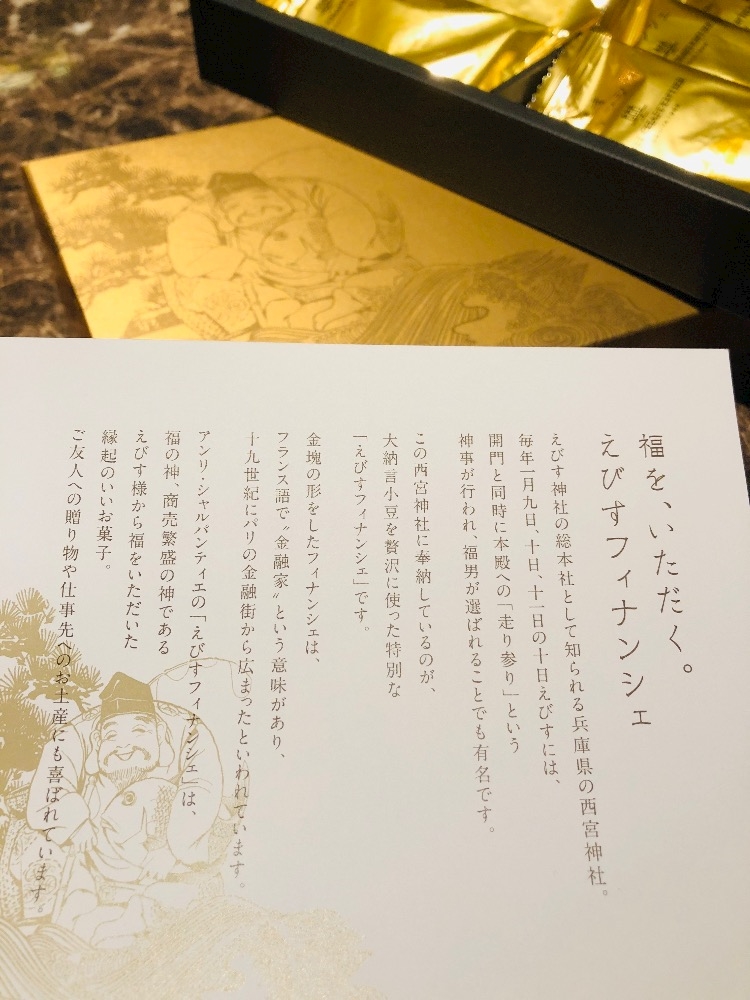 福を、いただく。
えびすフィナンシェ
えびす神社の総本社として知られる兵庫県の西宮神社。
毎年一月九日、十日、十一日の十日えびすには、
開門と同時に本殿への「走り参り」という
神事が行われ、福男が選ばれることでも有名です。
この西宮神社に奉納しているのが、
大納言小豆を贅沢に使った特別な
「えびすフィナンシェ」です。
金塊の形をしたフィナンシェは、
フランス語で〝金融家〟という意味があり、
十九世紀にパリの金融街から広まったといわれています。
アンリ・シャルパンティエの「えびすフィナンシェ」は、
福の神、商売繁盛の神である
えびす様から福をいただいた
縁起のいいお菓子。
ご友人への贈り物や仕事先へのお土産にも喜ばれています。